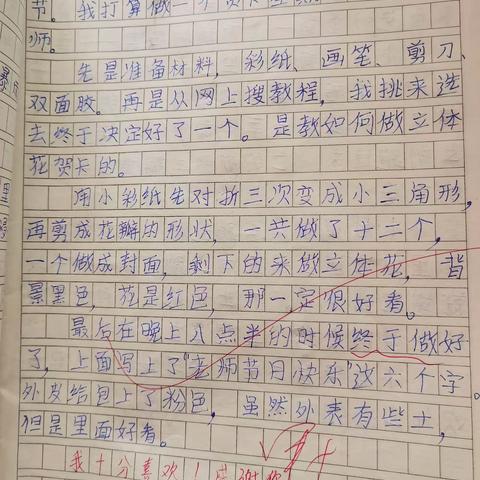 节。我打算做一个贺卡
师。
先是准备材料，彩纸、画笔、剪刀、
双面胶。再是从网上搜教程，我挑来选
去终于决定好了一个。是教如何做立体
花贺卡的。
用小彩纸先对折三次变成小三角形，
再剪成花瓣的形状，一共做了十二个，
一个做成封面，剩下的来做立体花，背
景黑色，花是红色，那一定很好看。
最后在晚上八点半的时候终于做好
了，上面写上了“老师节日快乐”这六个字。
外皮给包上了粉色，虽然外表有些土，
但是里面好看。
我十分喜欢！感谢你